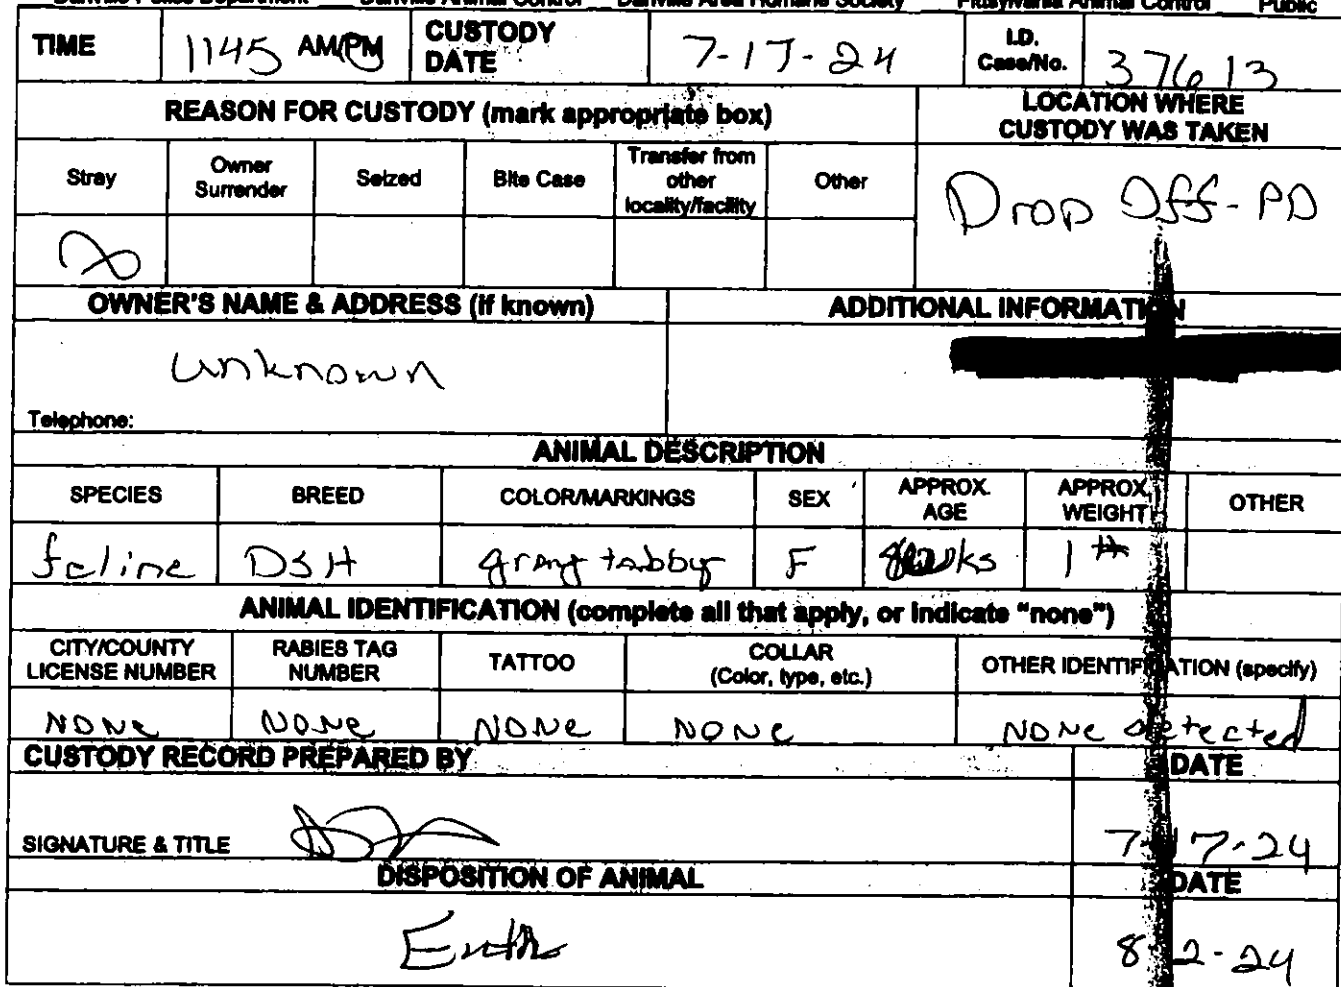 Danville Police Department Danville Animal Control Danville Area Humane Society Pittsylvania Animal Control Public
TIME 1145 AM/PM CUSTODY DATE 7-17-24 I.D. Case/No. 37613
REASON FOR CUSTODY (mark appropriate box) LOCATION WHERE CUSTODY WAS TAKEN
Stray Owner Surrender Seized Bite Case Transfer from other locality/facility Other
Drop Off-PD
OWNER'S NAME & ADDRESS (if known) ADDITIONAL INFORMATION
unknown
Telephone:
ANIMAL DESCRIPTION
SPECIES BREED COLOR/MARKINGS SEX APPROX. AGE APPROX. WEIGHT OTHER
feline DSH gray tabby F wks 1#
ANIMAL IDENTIFICATION (complete all that apply, or indicate "none")
CITY/COUNTY LICENSE NUMBER RABIES TAG NUMBER TATTOO COLLAR (Color, type, etc.) OTHER IDENTIFICATION (specify)
NONe NONe NONe NONe NONe detected
CUSTODY RECORD PREPARED BY DATE
SIGNATURE & TITLE 7-17-24
DISPOSITION OF ANIMAL DATE
Euth 8-2-24